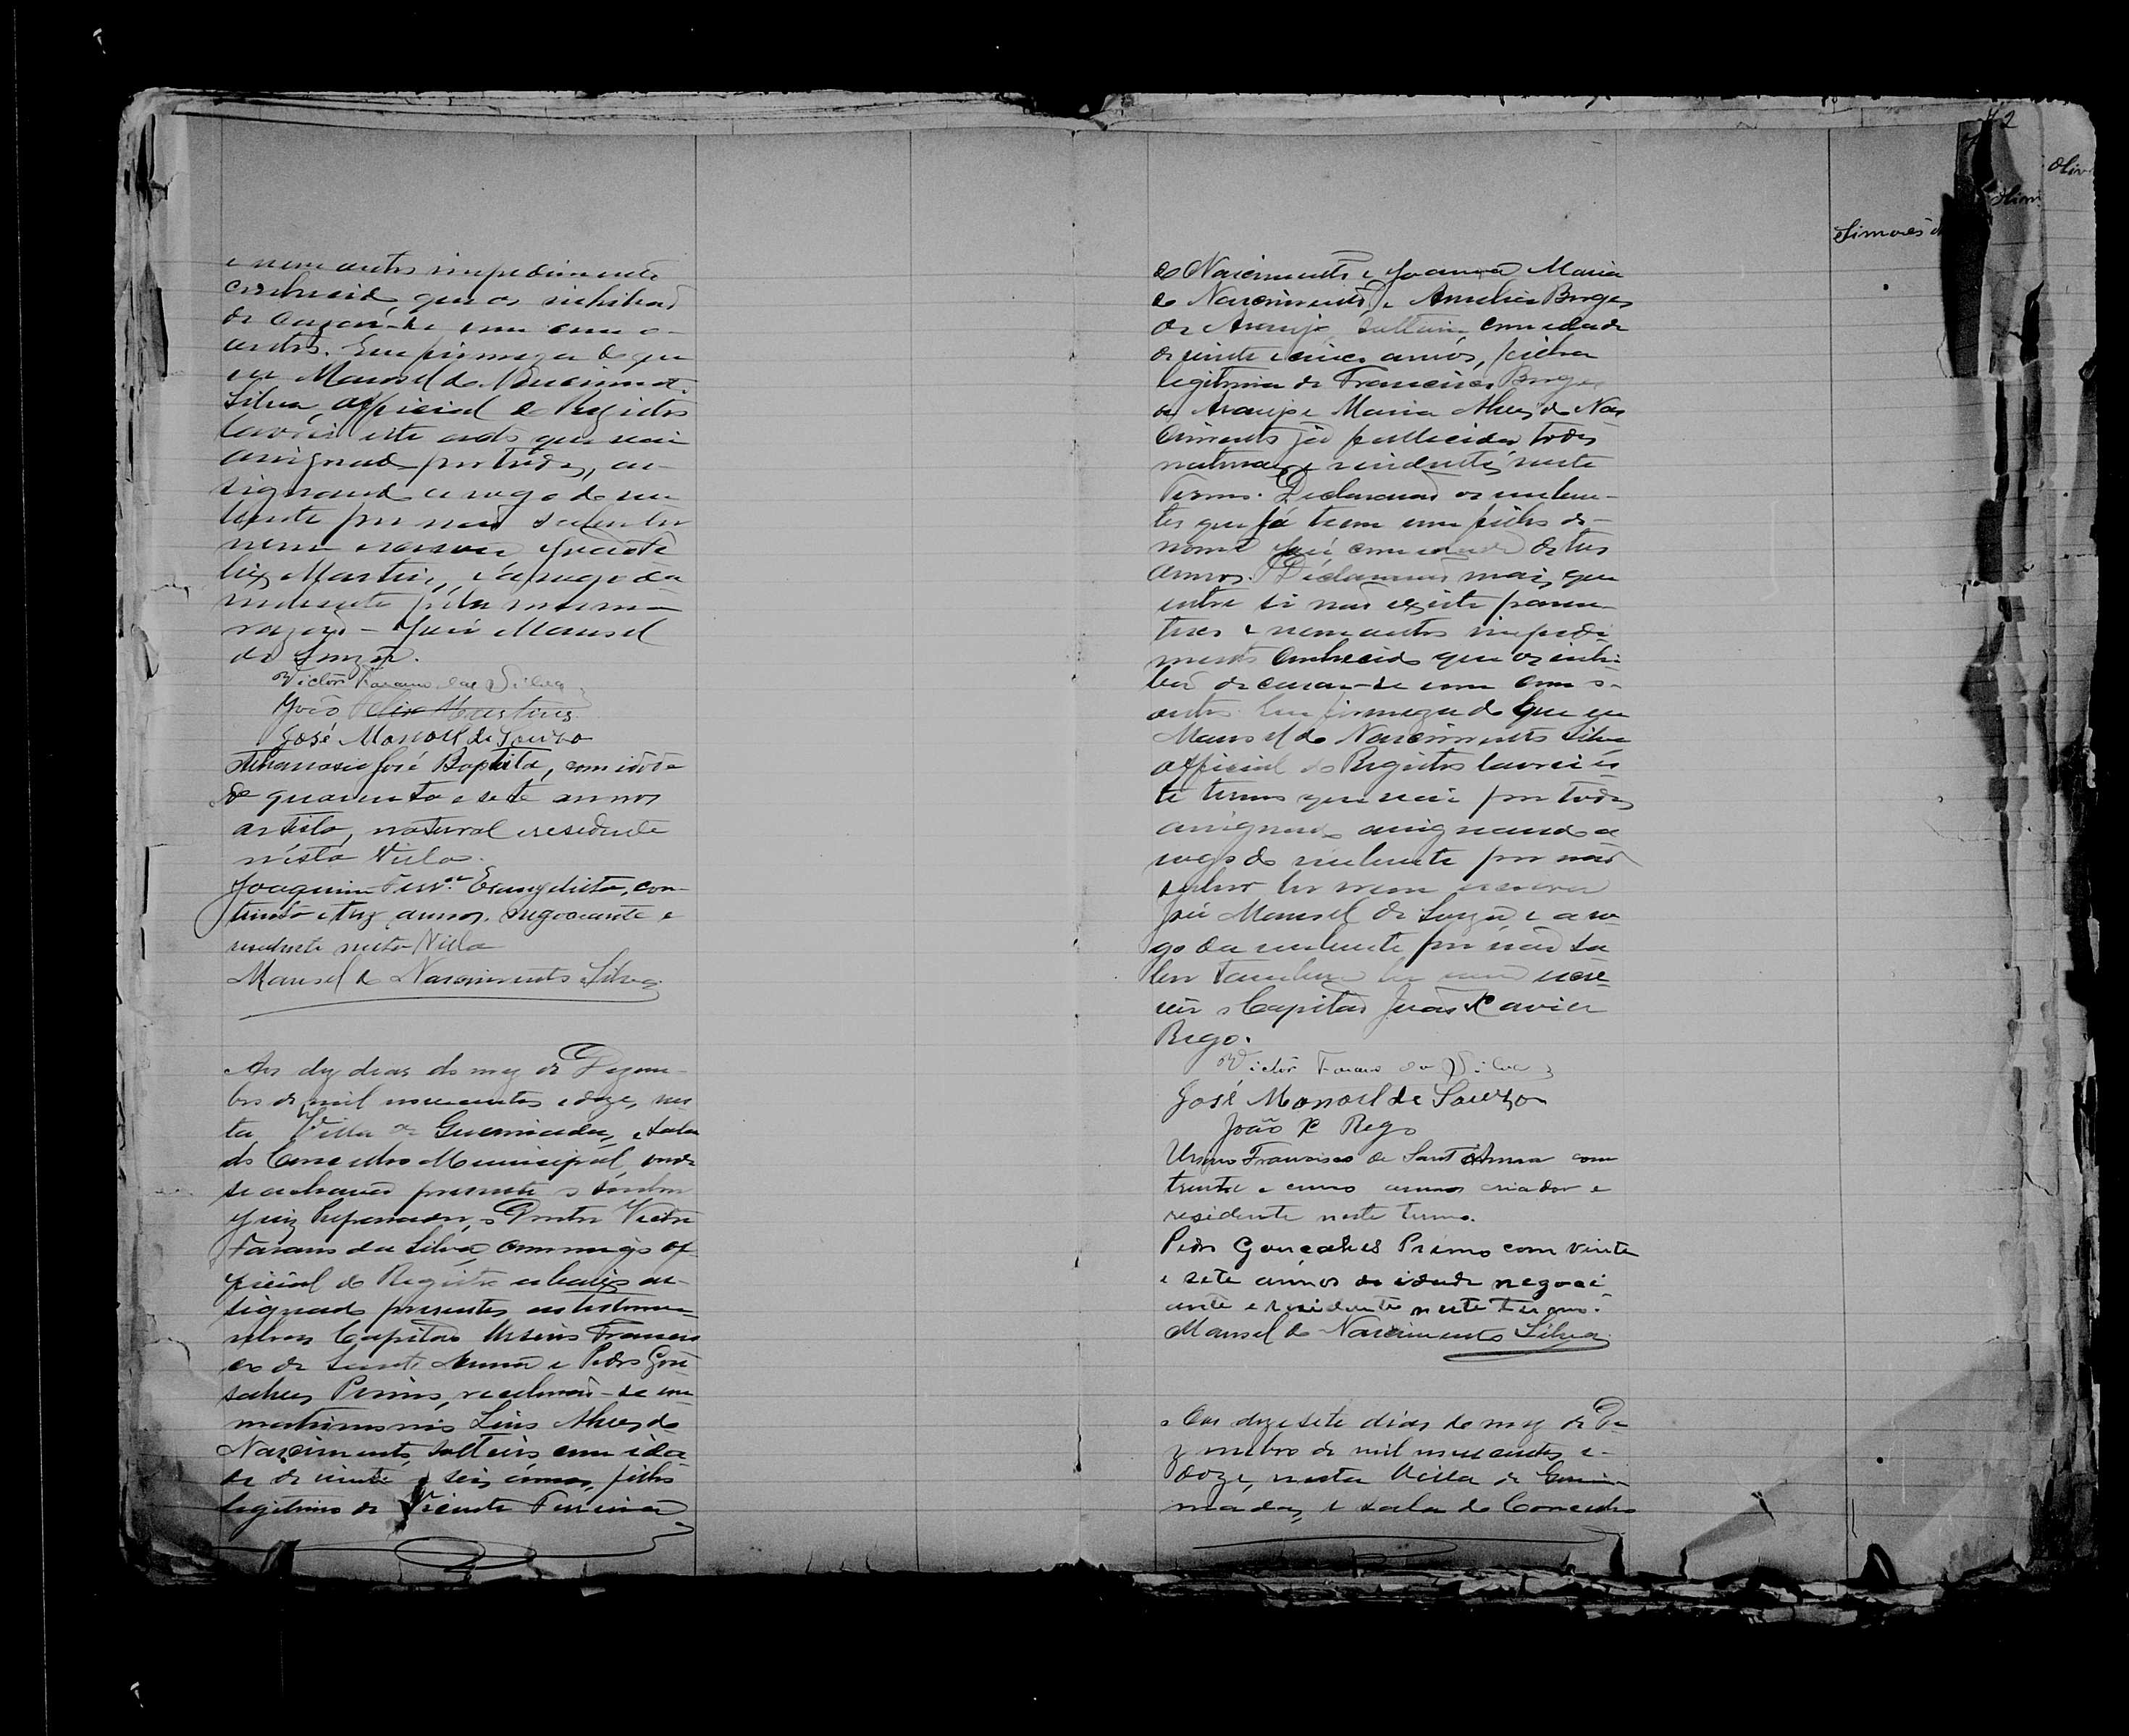 e nem outro impedimento
conhecido que os inhibão
de cazar-se um com o
outro. Em firmeza do que
eu Manoel do Nascimento
Silva, official do Registro
lavrei este acto que vai
assignado por todos, as-
signando a rogo do nu-
bente por não saber ler
nem escrever João Fe-
lix Martins, e a rogo da
nubente pela mesma
razão - José Manoel
de Souza.
Victor Farano da Silva
João Felix Martins
José Manoel de Souza
Athanasio José Baptista, com idade
de quarenta e sete annos
artista, natural e residente
nésta Villa.
Joaquim Ferrª Evangelista, con
trinta e trez annos, negociante e
residente nesta Villa
Manoel do Nascimento Silva
Aos dez dias do mez de Dezem-
bro de mil novecentos e doze, nes-
ta Villa de Guemiadas, e sala
do Concelho Municipal, onde
se achavão presente o senhor
Juiz Preparador, o Doutor Victor
Farano da Silva, commigo of-
ficial do Registro abaixo as-
signado presentes as testemu-
nhas Capitão Ursino Francis
co de Sant' Anna e Pedro Gon
salves Primo, receberão-se em
matrimonio Luis Alves do
Nascimento, solteiro, com ida-
de de vinte e seis annos, filho
legitimo de Vicente Ferreira
42
Simoés
Oliv
do Nascimento e Joanna Maria
do Nascimento, e Amelia Borges
de Araujo, solteira com idade
de vinte e cinco annos, filha
legitima de Francisco Borges
de Araujo e Maria Alves do Nas
cimento já fallecidos todos
naturaes e residentes neste
Termo. Declararão os nuben-
tes que já teem um filho de
nome José com idade de tres
annos. Declararam mais que
entre si não existe paren-
tesco e nem outro impedi-
mento conhecido que os inhi-
bão de casar-se um com o
outro. Em firmeza do que eu
Manoel do Nascimento Silva
official do Registro lavrei es-
te termo que vai por todos
assignado assignando a
rogo do nubente por não
saber ler nem escrever
José Manoel de Souza e a ro-
go da nubente por não sa-
ber tambem ler nem escre-
ver o Capitão João Xavier
Rego.
Victor Farano da Silva
José Manoel de Souza
João X Rego
Ursino Francisco de Sant'Anna com
trinta e cinco annos criador e
residente neste termo.
Pedro Gonçalves Primo com vinte
e sete annos de idade negoci
ante e residente neste termo.
Manoel do Nascimento Silva
Aos dezesete dias do mez de De
zembro de mil novecentos e
doze, nesta Villa de Guemi-
madas, e sala do Concelho